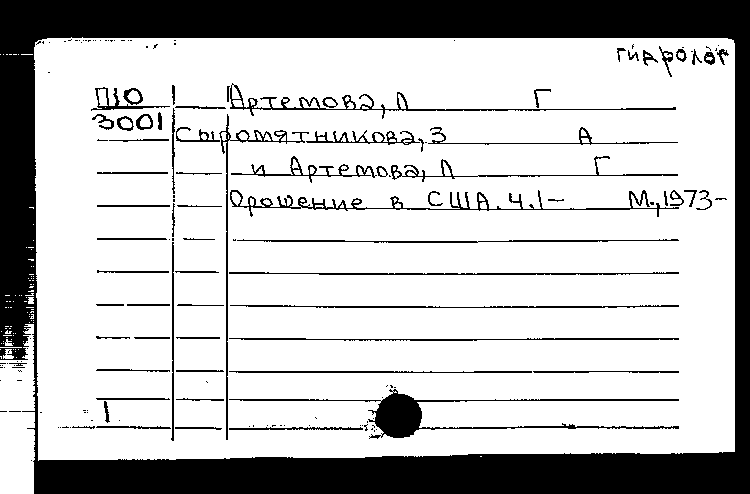 гидролог
П10 Артемова, Л Г
3001 Сыромятникова, З А
и Артемова, Л Г
Орошение в США. Ч.1- М., 1973-
1